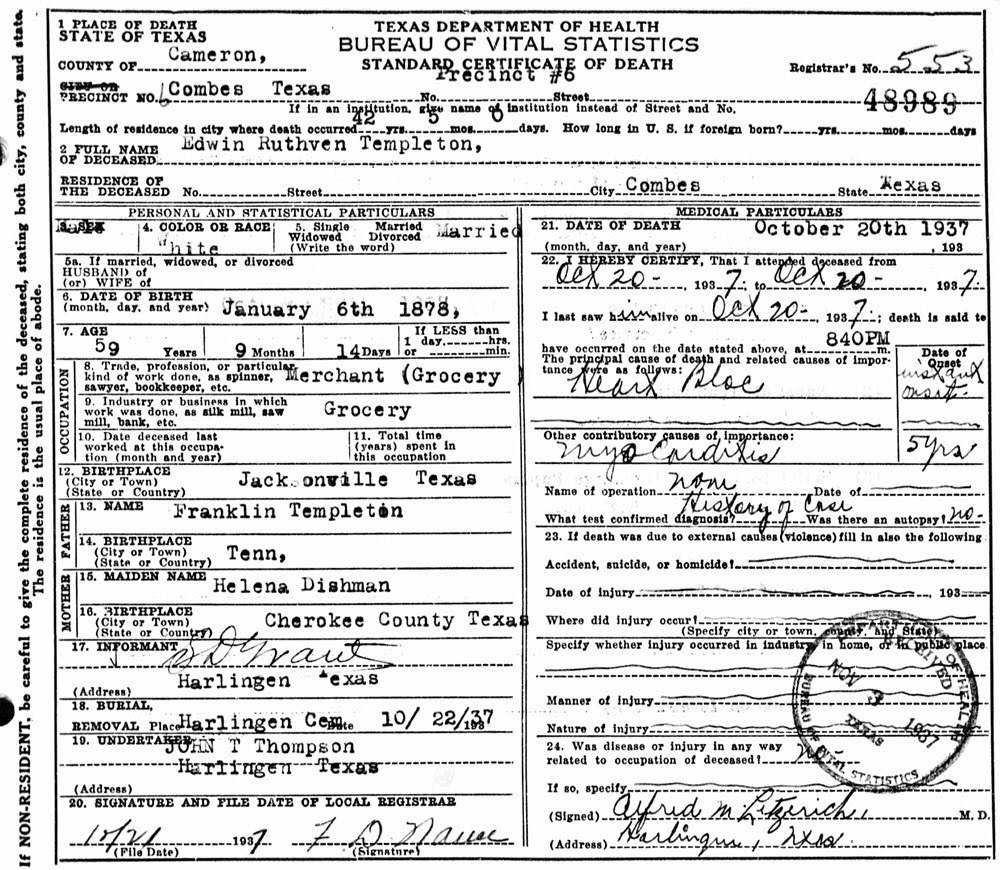 TEXAS DEPARTMENT OF HEALTH
BUREAU OF VITAL STATISTICS
STANDARD CERTIFICATE OF DEATH
1 PLACE OF DEATH
STATE OF TEXAS
COUNTY OF Cameron,
Registrar's No. 553
Precinct #6
CITY OR
PRECINCT NO. 6 Combes Texas No. Street
48989
If in an institution, give name of institution instead of Street and No.
Length of residence in city where death occurred 42 yrs. 5 mos. 0 days. How long in U. S. if foreign born? yrs. mos. days
2 FULL NAME
OF DECEASED Edwin Ruthven Templeton,
RESIDENCE OF
THE DECEASED No. Street City Combes State Texas
PERSONAL AND STATISTICAL PARTICULARS
3. SEX
4. COLOR OR RACE White
5. Single Married
Widowed Divorced
(Write the word) Married
5a. If married, widowed, or divorced
HUSBAND of
(or) WIFE of
6. DATE OF BIRTH
(month, day, and year) January 6th 1878,
7. AGE
59 Years 9 Months 14 Days
If LESS than
1 day, hrs.
or min.
OCCUPATION
8. Trade, profession, or particular
kind of work done, as spinner,
sawyer, bookkeeper, etc. Merchant (Grocery
9. Industry or business in which
work was done, as silk mill, saw
mill, bank, etc. Grocery
10. Date deceased last
worked at this occupa-
tion (month and year)
11. Total time
(years) spent in
this occupation
12. BIRTHPLACE
(City or Town)
(State or Country) Jacksonville Texas
FATHER
13. NAME Franklin Templeton
14. BIRTHPLACE
(City or Town)
(State or Country) Tenn,
MOTHER
15. MAIDEN NAME Helena Dishman
16. BIRTHPLACE
(City or Town)
(State or Country) Cherokee County Texas
17. INFORMANT
(Address) Harlingen Texas
18. BURIAL,
REMOVAL Place Harlingen Cem Date 10/ 22/37 193
19. UNDERTAKER JOHN T Thompson
Harlingen Texas
(Address)
20. SIGNATURE AND FILE DATE OF LOCAL REGISTRAR
10/21 1937
(File Date) (Signature)
MEDICAL PARTICULARS
21. DATE OF DEATH October 20th 1937
(month, day, and year) , 193
22. I HEREBY CERTIFY, That I attended deceased from
Oct 20- , 1937. to Oct 20- , 1937.
I last saw him alive on Oct 20- , 1937.; death is said to
have occurred on the date stated above, at 840PM m.
The principal cause of death and related causes of impor-
tance were as follows:
Heart Bloc
Date of
Onset
Other contributory causes of importance:
Myo Carditis
5 yrs
Name of operation none Date of
What test confirmed diagnosis? History of Case Was there an autopsy? no-
23. If death was due to external causes (violence) fill in also the following
Accident, suicide, or homicide?
Date of injury , 193
Where did injury occur?
(Specify city or town, county, and State)
Specify whether injury occurred in industry, in home, or in public place
Manner of injury
Nature of injury
24. Was disease or injury in any way
related to occupation of deceased? no
If so, specify
(Signed) Alfred M Letzerich, M. D.
(Address) Harlingen, Texas
RECEIVED
NOV 3 1937
TEXAS
BUREAU OF VITAL STATISTICS
If NON-RESIDENT, be careful to give the complete residence of the deceased, stating both city, county and state.
The residence is the usual place of abode.